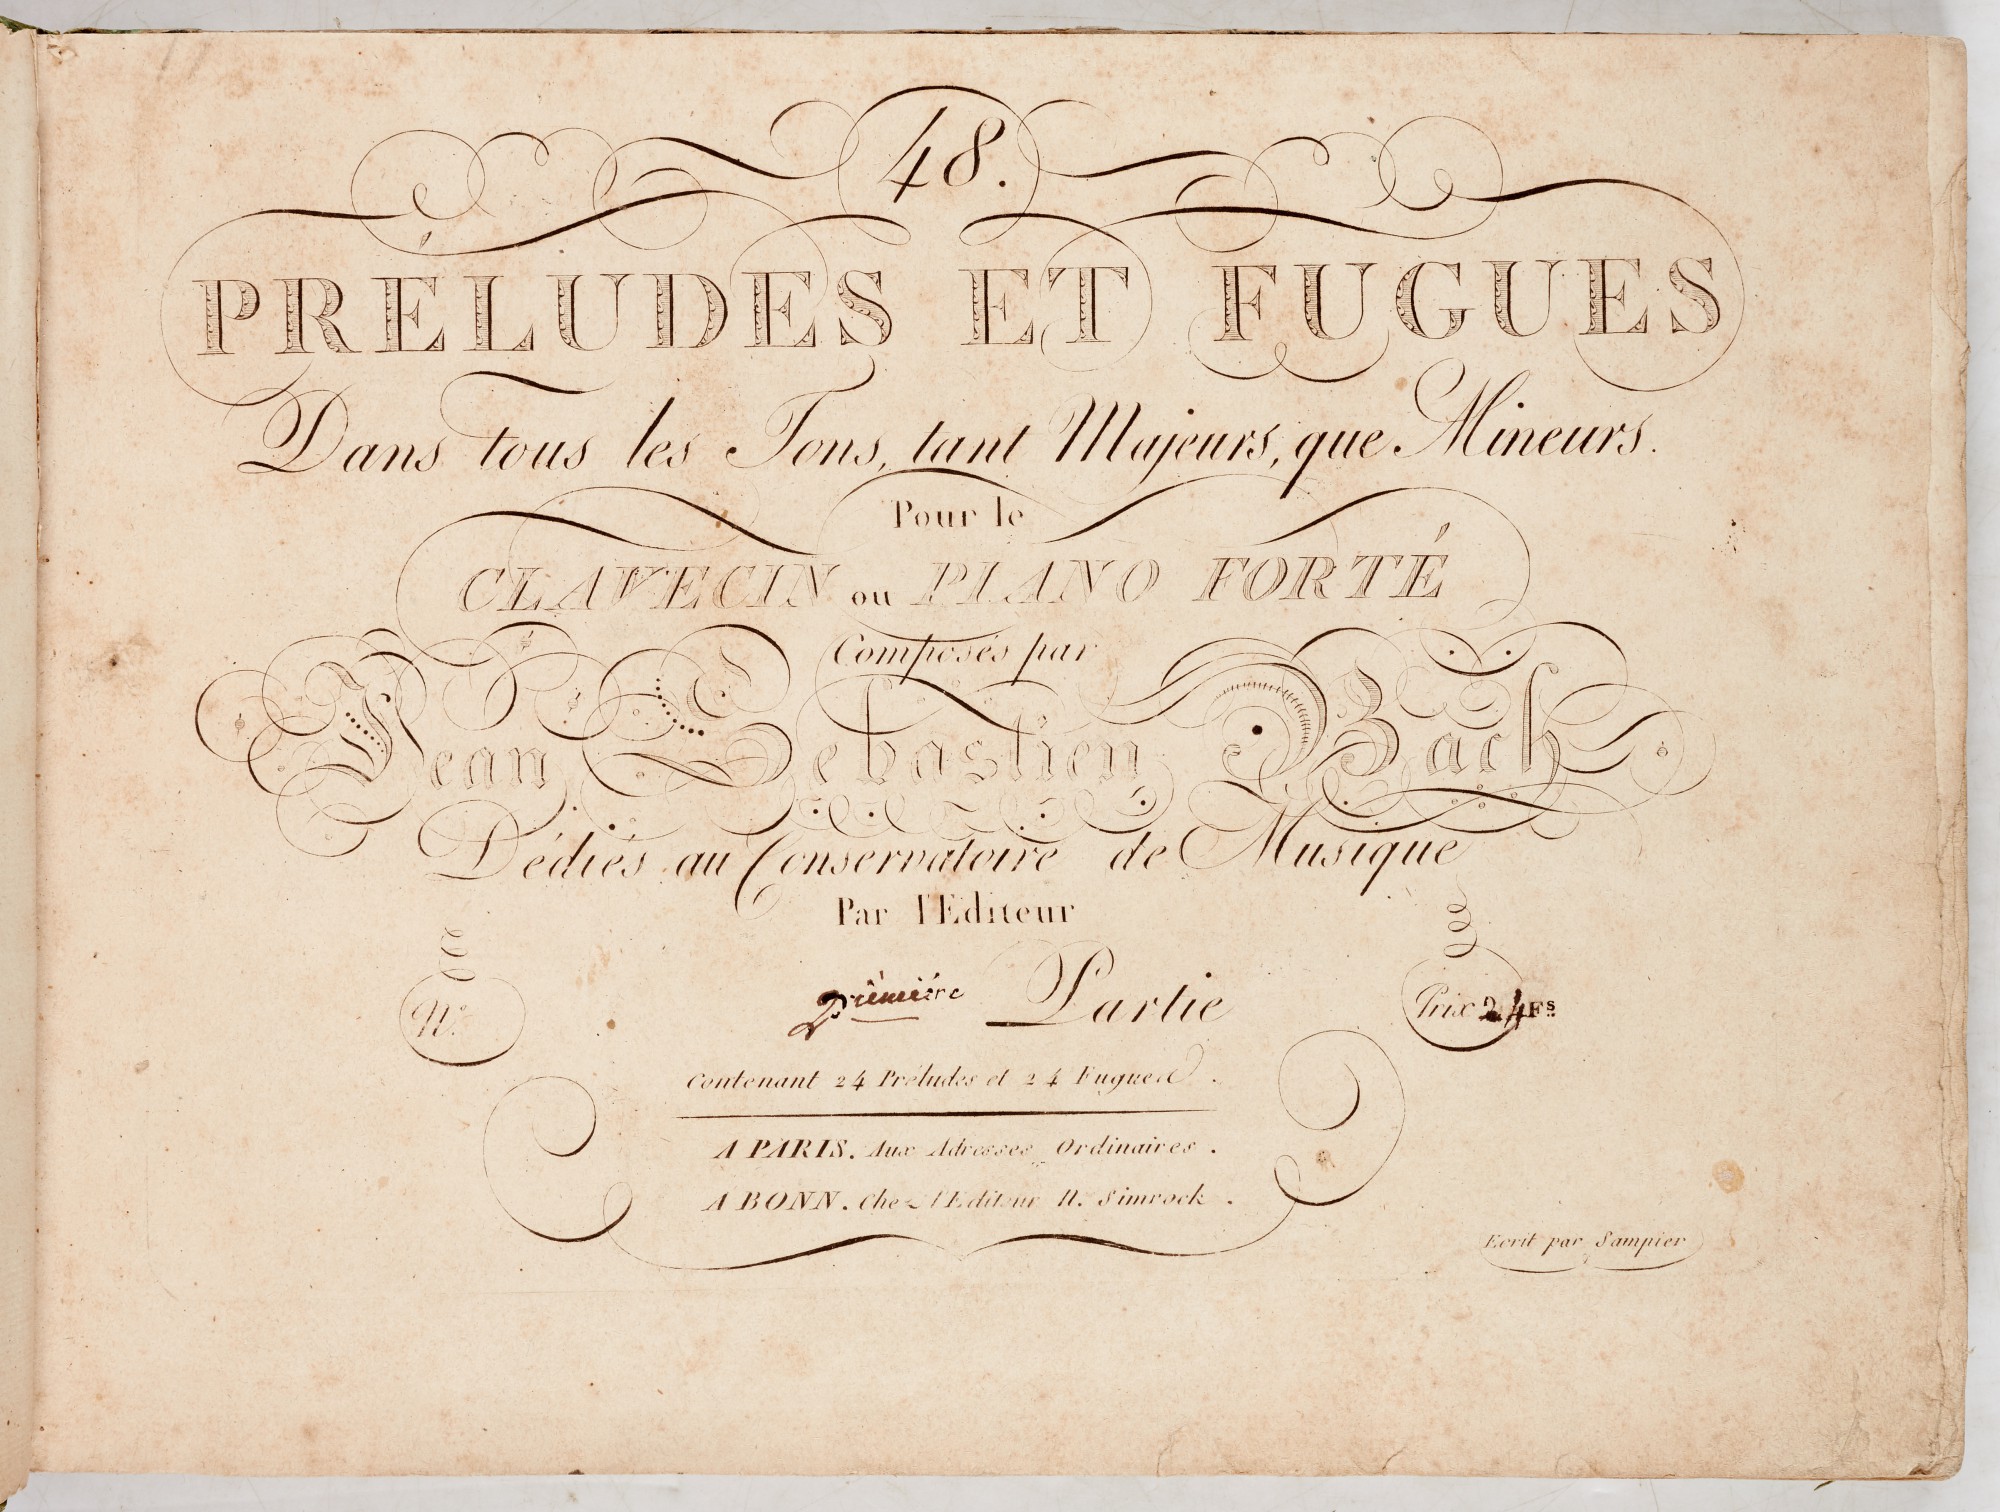 48.
PRÉLUDES ET FUGUES
Dans tous les Tons, tant Majeurs, que Mineurs.
Pour le
CLAVECIN ou PIANO FORTÉ
Composés par
Jean Sebastien Bach
Dédiés au Conservatoire de Musique
Par l'Editeur
Premiére Partie
N°.
Prix 24 Fs
Contenant 24 Préludes et 24 Fugues.
A PARIS. Aux Adresses Ordinaires.
A BONN. Chez l'Editeur N. Simrock.
Ecrit par Sampier